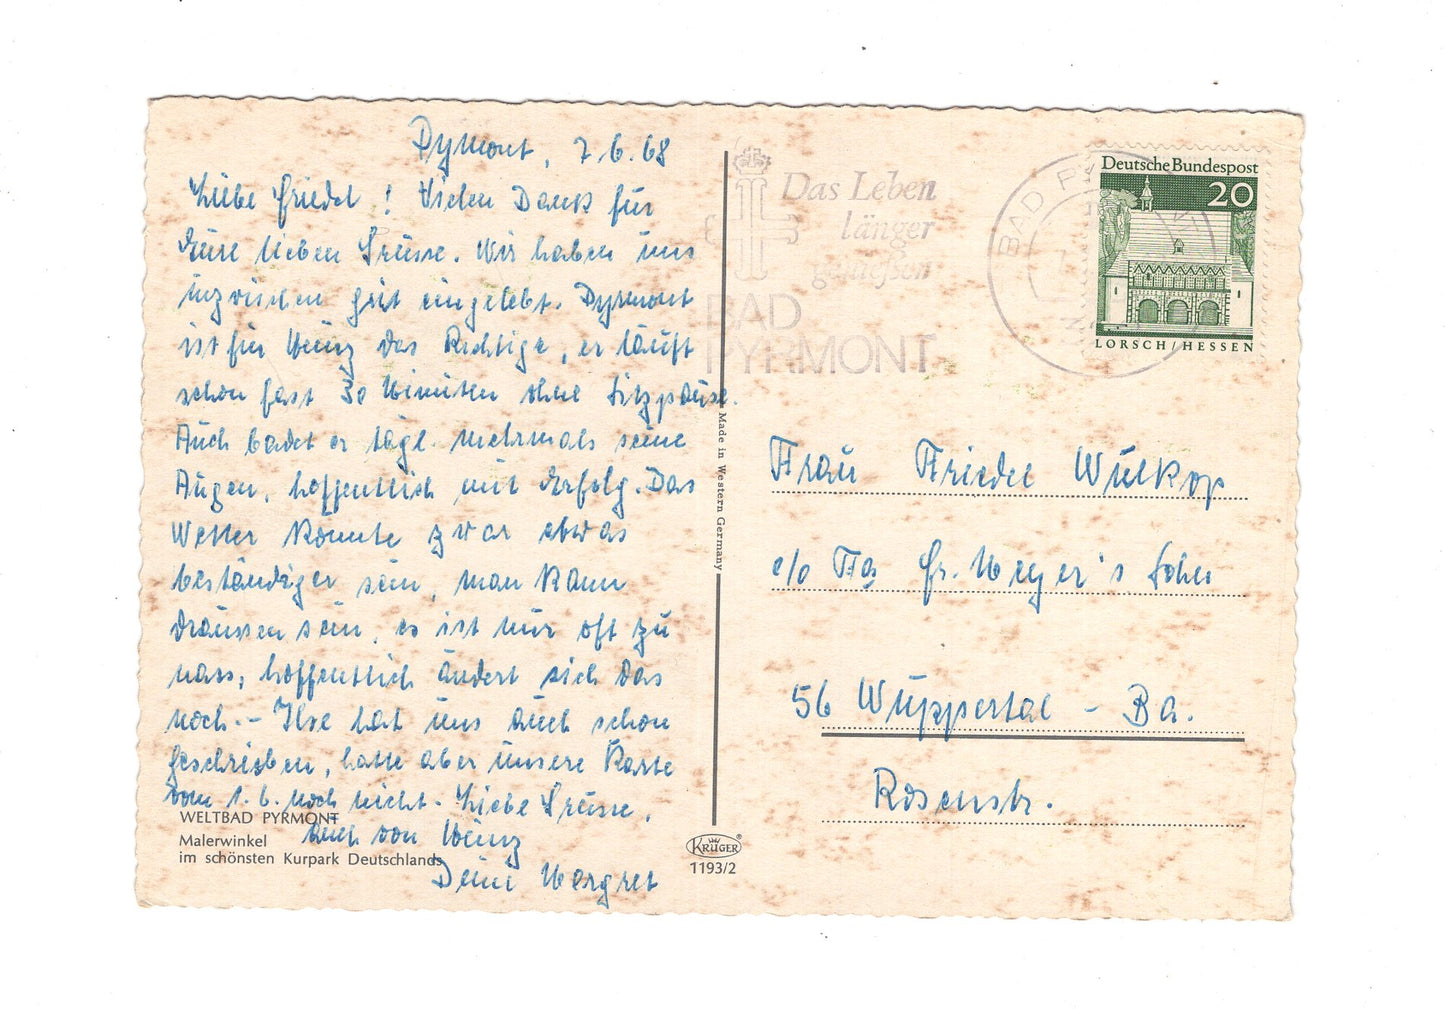 Pyrmont, 7.6.68
Liebe Friedel! Vielen Dank für
Eure lieben Grüsse. Wir haben uns
inzwischen gut eingelebt. Pyrmont
ist für Heinz das Richtige, er läuft
schon fast 30 Minuten ohne Sitzpause.
Auch badet er tägl. mehrmals seine
Augen, hoffentlich mit Erfolg. Das
Wetter könnte zwar etwas
beständiger sein, man kann
draussen sein, es ist nur oft zu
nass, hoffentlich ändert sich das
noch. - Ilse hat uns auch schon
geschrieben, hatte aber unsere Karte
vom 1.6. noch nicht. Liebe Grüsse,
auch von Heinz
Deine Margret
WELTBAD PYRMONT
Malerwinkel
im schönsten Kurpark Deutschlands
Made in Western Germany
KRÜGER
1193/2
Das Leben
länger
genießen
BAD
PYRMONT
BAD
Deutsche Bundespost
20
LORSCH/HESSEN
Frau Friedel Wülkop
c/o Fa Fr. Meyer's Sohn
56 Wuppertal - Ba.
Rosenstr.